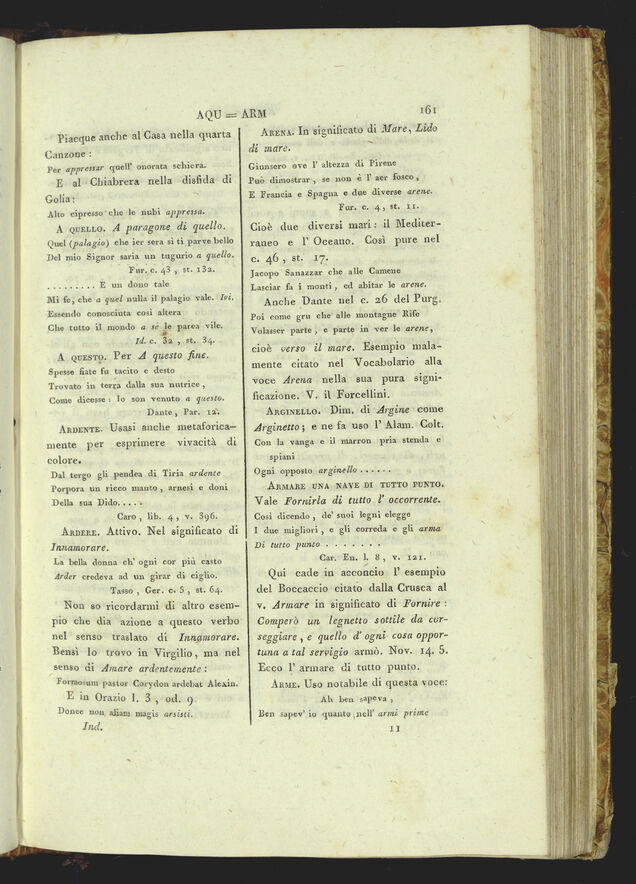 AQU = ARM
161
Piacque anche al Casa nella quarta
Canzone :
Per appressar quell' onorata schiera.
E al Chiabrera nella disfida di
Golia :
Alto cipresso che le nubi appressa.
A QUELLO. A paragone di quello.
Quel (palagio) che ier sera si ti parve bello
Del mio Signor saria un tugurio a quello.
Fur. c. 43 , st. 132.
. . . . . . . . . E un dono tale
Mi fe, che a quel nulla il palagio vale. Ivi.
Essendo conosciuta così altera
Che tutto il mondo a se le parea vile.
Id. c. 32 , st. 34.
A QUESTO. Per A questo fine.
Spesse fiate fu tacito e desto
Trovato in terra dalla sua nutrice ,
Come dicesse : Io son venuto a questo.
Dante , Par. 12.
ARDENTE. Usasi anche metaforica-
mente per esprimere vivacità di
colore.
Dal tergo gli pendea di Tiria ardente
Porpora un ricco manto , arnesi e doni
Della sua Dido. . . .
Caro , lib. 4 , v. 396.
ARDERE. Attivo. Nel significato di
Innamorare.
La bella donna ch' ogni cor più casto
Arder credeva ad un girar di ciglio.
Tasso , Ger. c. 5 , st. 64.
Non so ricordarmi di altro esem-
pio che dia azione a questo verbo
nel senso traslato di Innamorare.
Bensì lo trovo in Virgilio , ma nel
senso di Amare ardentemente :
Formosum pastor Corydon ardebat Alexin.
E in Orazio l. 3 , od. 9.
Donec non aliam magis arsisti.
Ind.
ARENA. In significato di Mare, Lido
di mare.
Giunsero ove l' altezza di Pirene
Può dimostrar , se non è l' aer fosco ,
E Francia e Spagna e due diverse arene.
Fur. c. 4 , st. 11.
Cioè due diversi mari : il Mediter-
raneo e l' Oceano. Così pure nel
c. 46 , st. 17.
Jacopo Sanazzar che alle Camene
Lasciar fa i monti , ed abitar le arene.
Anche Dante nel c. 26 del Purg.
Poi come gru che alle montagne Rife
Volasser parte , e parte in ver le arene,
cioè verso il mare. Esempio mala-
mente citato nel Vocabolario alla
voce Arena nella sua pura signi-
ficazione. V. il Forcellini.
ARGINELLO. Dim. di Argine come
Arginetto ; e ne fa uso l' Alam. Colt.
Con la vanga e il marron pria stenda e
spiani
Ogni opposto arginello . . . . . .
ARMARE UNA NAVE DI TUTTO PUNTO.
Vale Fornirla di tutto l' occorrente.
Così dicendo , de' suoi legni elegge
I due migliori , e gli correda e gli arma
Di tutto punto . . . . . . .
Car. En. l. 8 , v. 121.
Qui cade in acconcio l' esempio
del Boccaccio citato dalla Crusca al
v. Armare in significato di Fornire :
Comperò un legnetto sottile da cor-
seggiare , e quello d' ogni cosa oppor-
tuna a tal servigio armò. Nov. 14. 5.
Ecco l' armare di tutto punto.
ARME. Uso notabile di questa voce:
Ah ben sapeva ,
Ben sapev' io quanto nell' armi prime
11